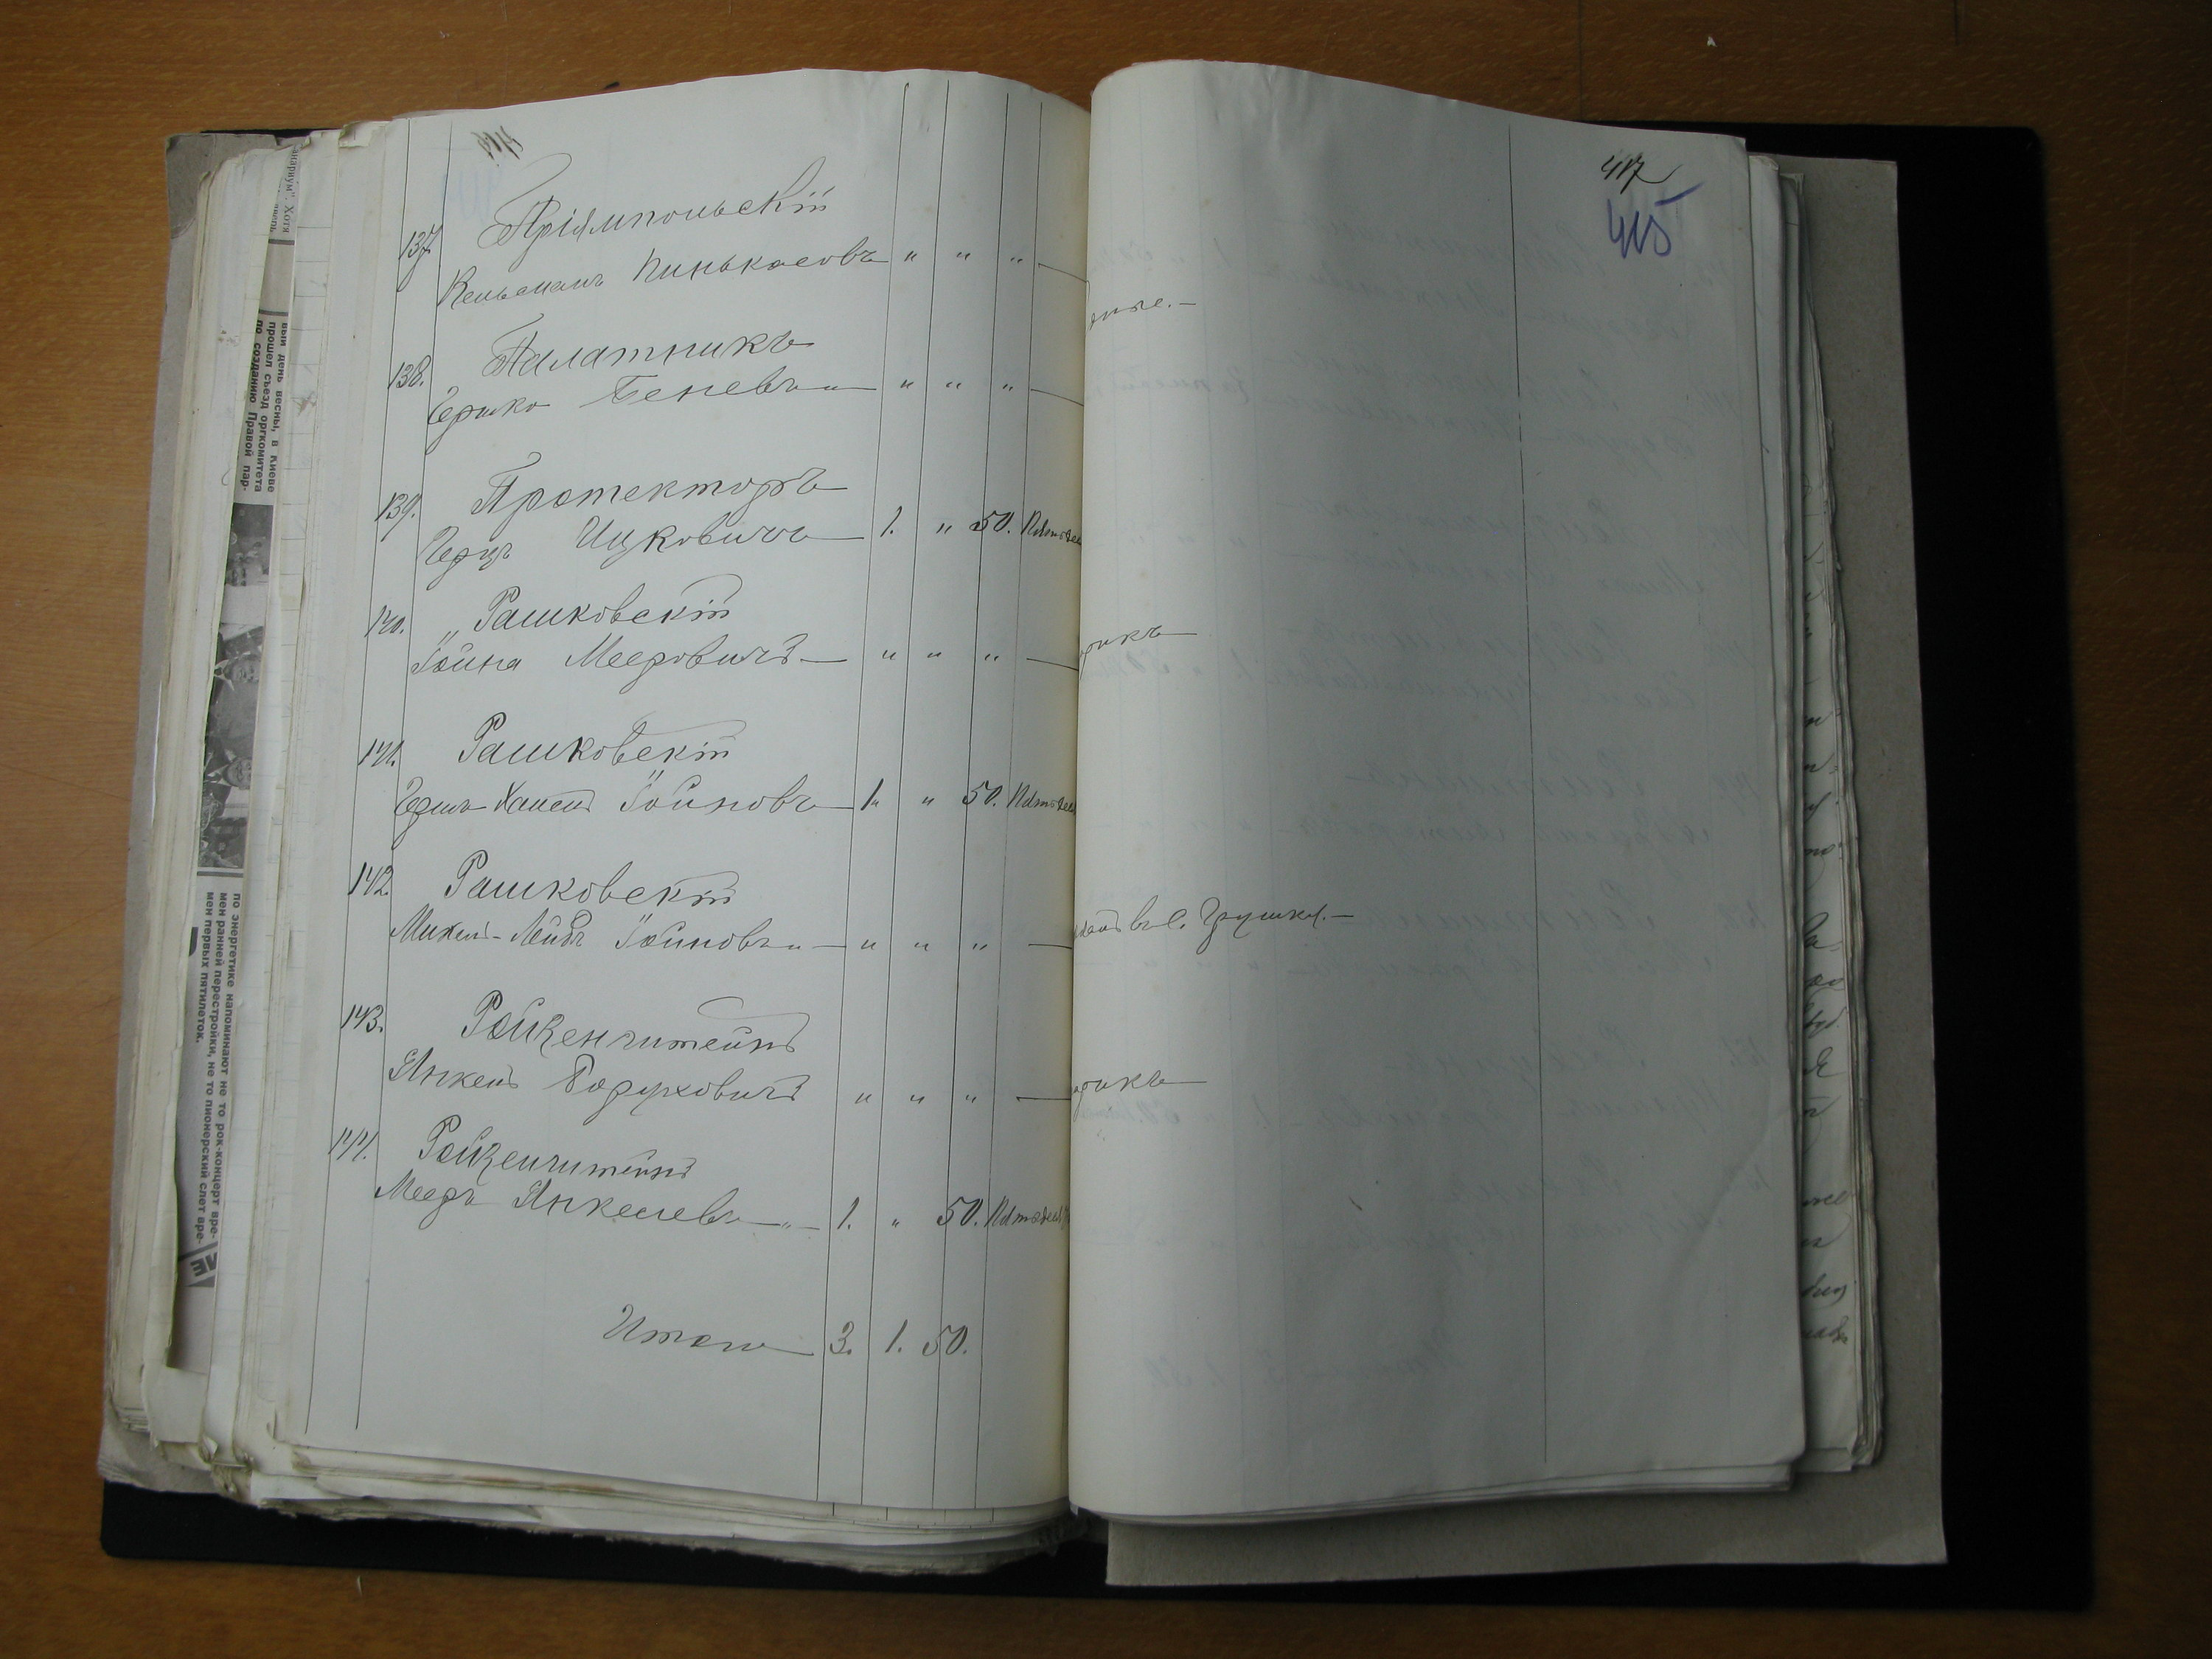 417
415
137. Пріямпольскій
Кельманъ Пинькасовъ " " "
138. Палатникъ
Гершко Беневъ " " " "
139. Протекторъ
Герцъ Ицковичъ 1. " 50.
140. „ Рашковскій
Іойна Мееровичъ " " "
141. Рашковскій
Гершъ Хаимъ Іойновъ 1 " 50.
142 Рашковскій
Михель-Лейбъ Іойновъ " " " "
въ с. Грушкѣ.
143. Ройзенштейнъ
Янкель Боруховичъ " " "
144. Ройзенштейнъ
Мееръ Янкелевъ " 1. " 50.
Итого 3. 1. 50.
вый день весны, в Киеве
прошел съезд оргкомитета
по созданию Правой пар-
по энергетике напоминают не то рок-концерт вре-
мен ранней перестройки, не то пионерский слет вре-
мен первых пятилеток.